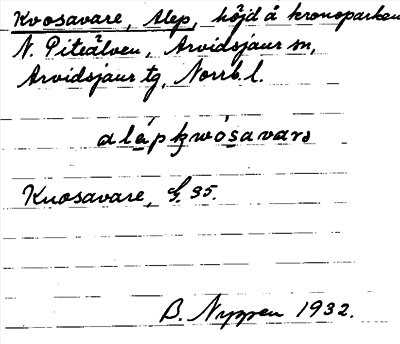 Kvosavare, Alep, höjd å kronoparken
N. Piteälven, Arvidsjaur sn,
Arvidsjaur tg, Norrb. l.
alápkwósavarə
Kuosavare, G. 35.
B. Nyppen 1932.